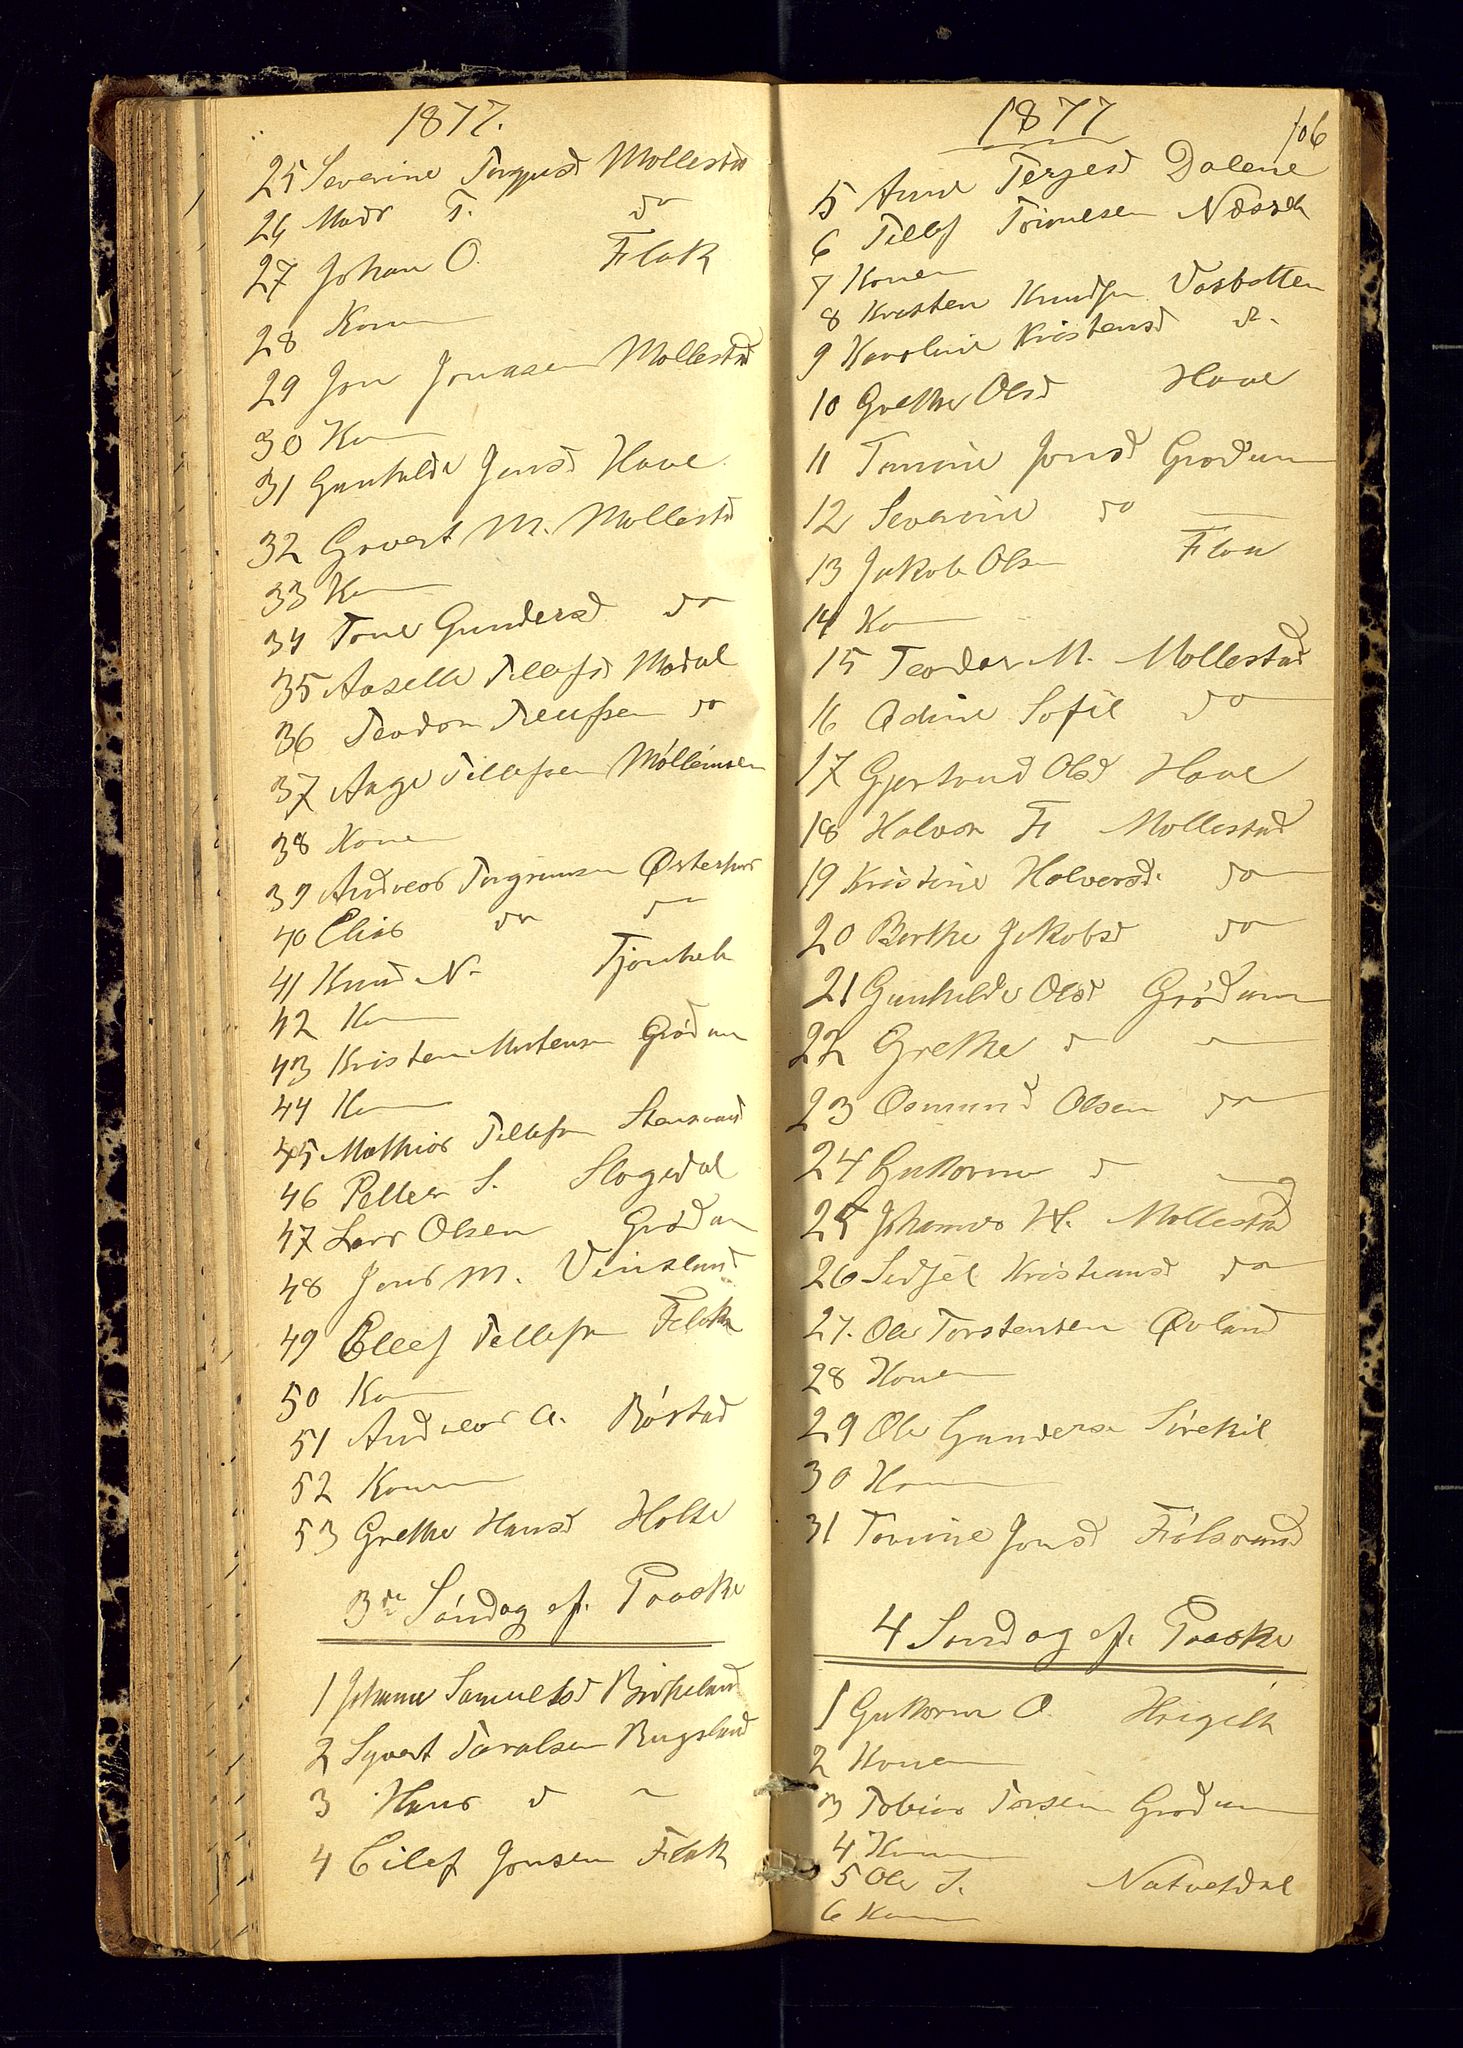 1877.
25 Severine Torjusd Mollestad
26 Mads T. do
27 Johan O. Flak
28 Konen
29 Jon Jonasen Mollestad
30 Ko
31 Gunhilde Jensd Hove
32 Govert M. Mollestd
33 Ko
34 Tone Gundersd do
35 Aaselle Tellefsd Modal
36 Teodor Tellefsen do
37 Aage Tellefsen
38 Konen
39 Andreas Torgrimsen
40 Elias do do
41 Knud N.
42 Ko
43 Kristen Mortensen Grødum
44 Ko
45 Mathias Tellefsn Stensvand
46 Petter S. Slogedal
47 Lars Olsen Grødum
48 Jens M. Vinsland
49 Ellef Tellefsn Flak
50 Ko
51 Andreas A. Røstad
52 Konen
53 Grethe Hansd Holte
3die Søndag ef. Paaske
1 Johanne Samuelsd Birkeland
2 Syvert Taralsen Rugsland
3 Hans d
4 Eilef Jonsen Flak
1877
106
5 Anne Terjesd Dalene
6 Tellef
7 Konen
8 Kristen Knudsn Vasbotten
9 Karoline Kristensd do
10 Grethe Olsd Hove
11 Tomine Jonsd Grødum
12 Severine do
13 Jakob Olsn Flaa
14 Ko
15 Teodor M. Mollestad
16 Odine Sofie do
17 Gjertrud Olsd Hove
18 Halvor F Mollestad
19 Kristine Halvorsd. do
20 Berthe Jakobsd do
21 Gunhilde Olsd Grødum
22 Grethe d
23 Osmund Olsen do
24 Guttorm d
25 Johannes H. Mollestad
26 Sidsel Kristiansd do
27. Ole Torstensen Øvland
28 Konen
29 Ole Gundersn
30 Konen
31 Tomine Jonsd
4 Søndag ef. Paaske
1 Guttorm O.
2 Konen
3 Tobias Torsen Grødum
4 Konen
5 Ole S. Natvetdal
6 Konen